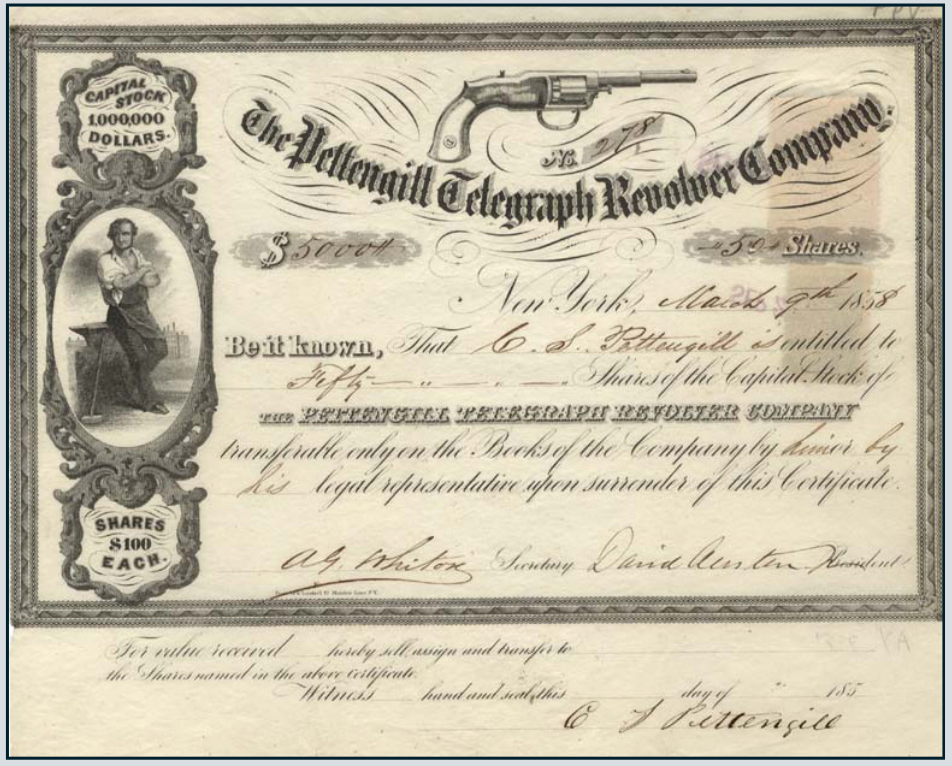 CAPITAL
STOCK
1,000,000
DOLLARS.
The Pettengill Telegraph Revolver Company.
No. 278
$ 5000 50 Shares.
New York, March 9th 1858
Be it known, That C. S. Pettengill is entitled to
Fifty — " — " — " Shares of the Capital Stock of
THE PETTENGILL TELEGRAPH REVOLVER COMPANY
transferable only on the Books of the Company by him or by
his legal representative upon surrender of this Certificate.
SHARES
$100
EACH.
A.G. Whiton Secretary David Austen President
For value received hereby sell, assign and transfer to
the Shares named in the above certificate.
Witness hand and seal this day of " 185
C S Pettengill